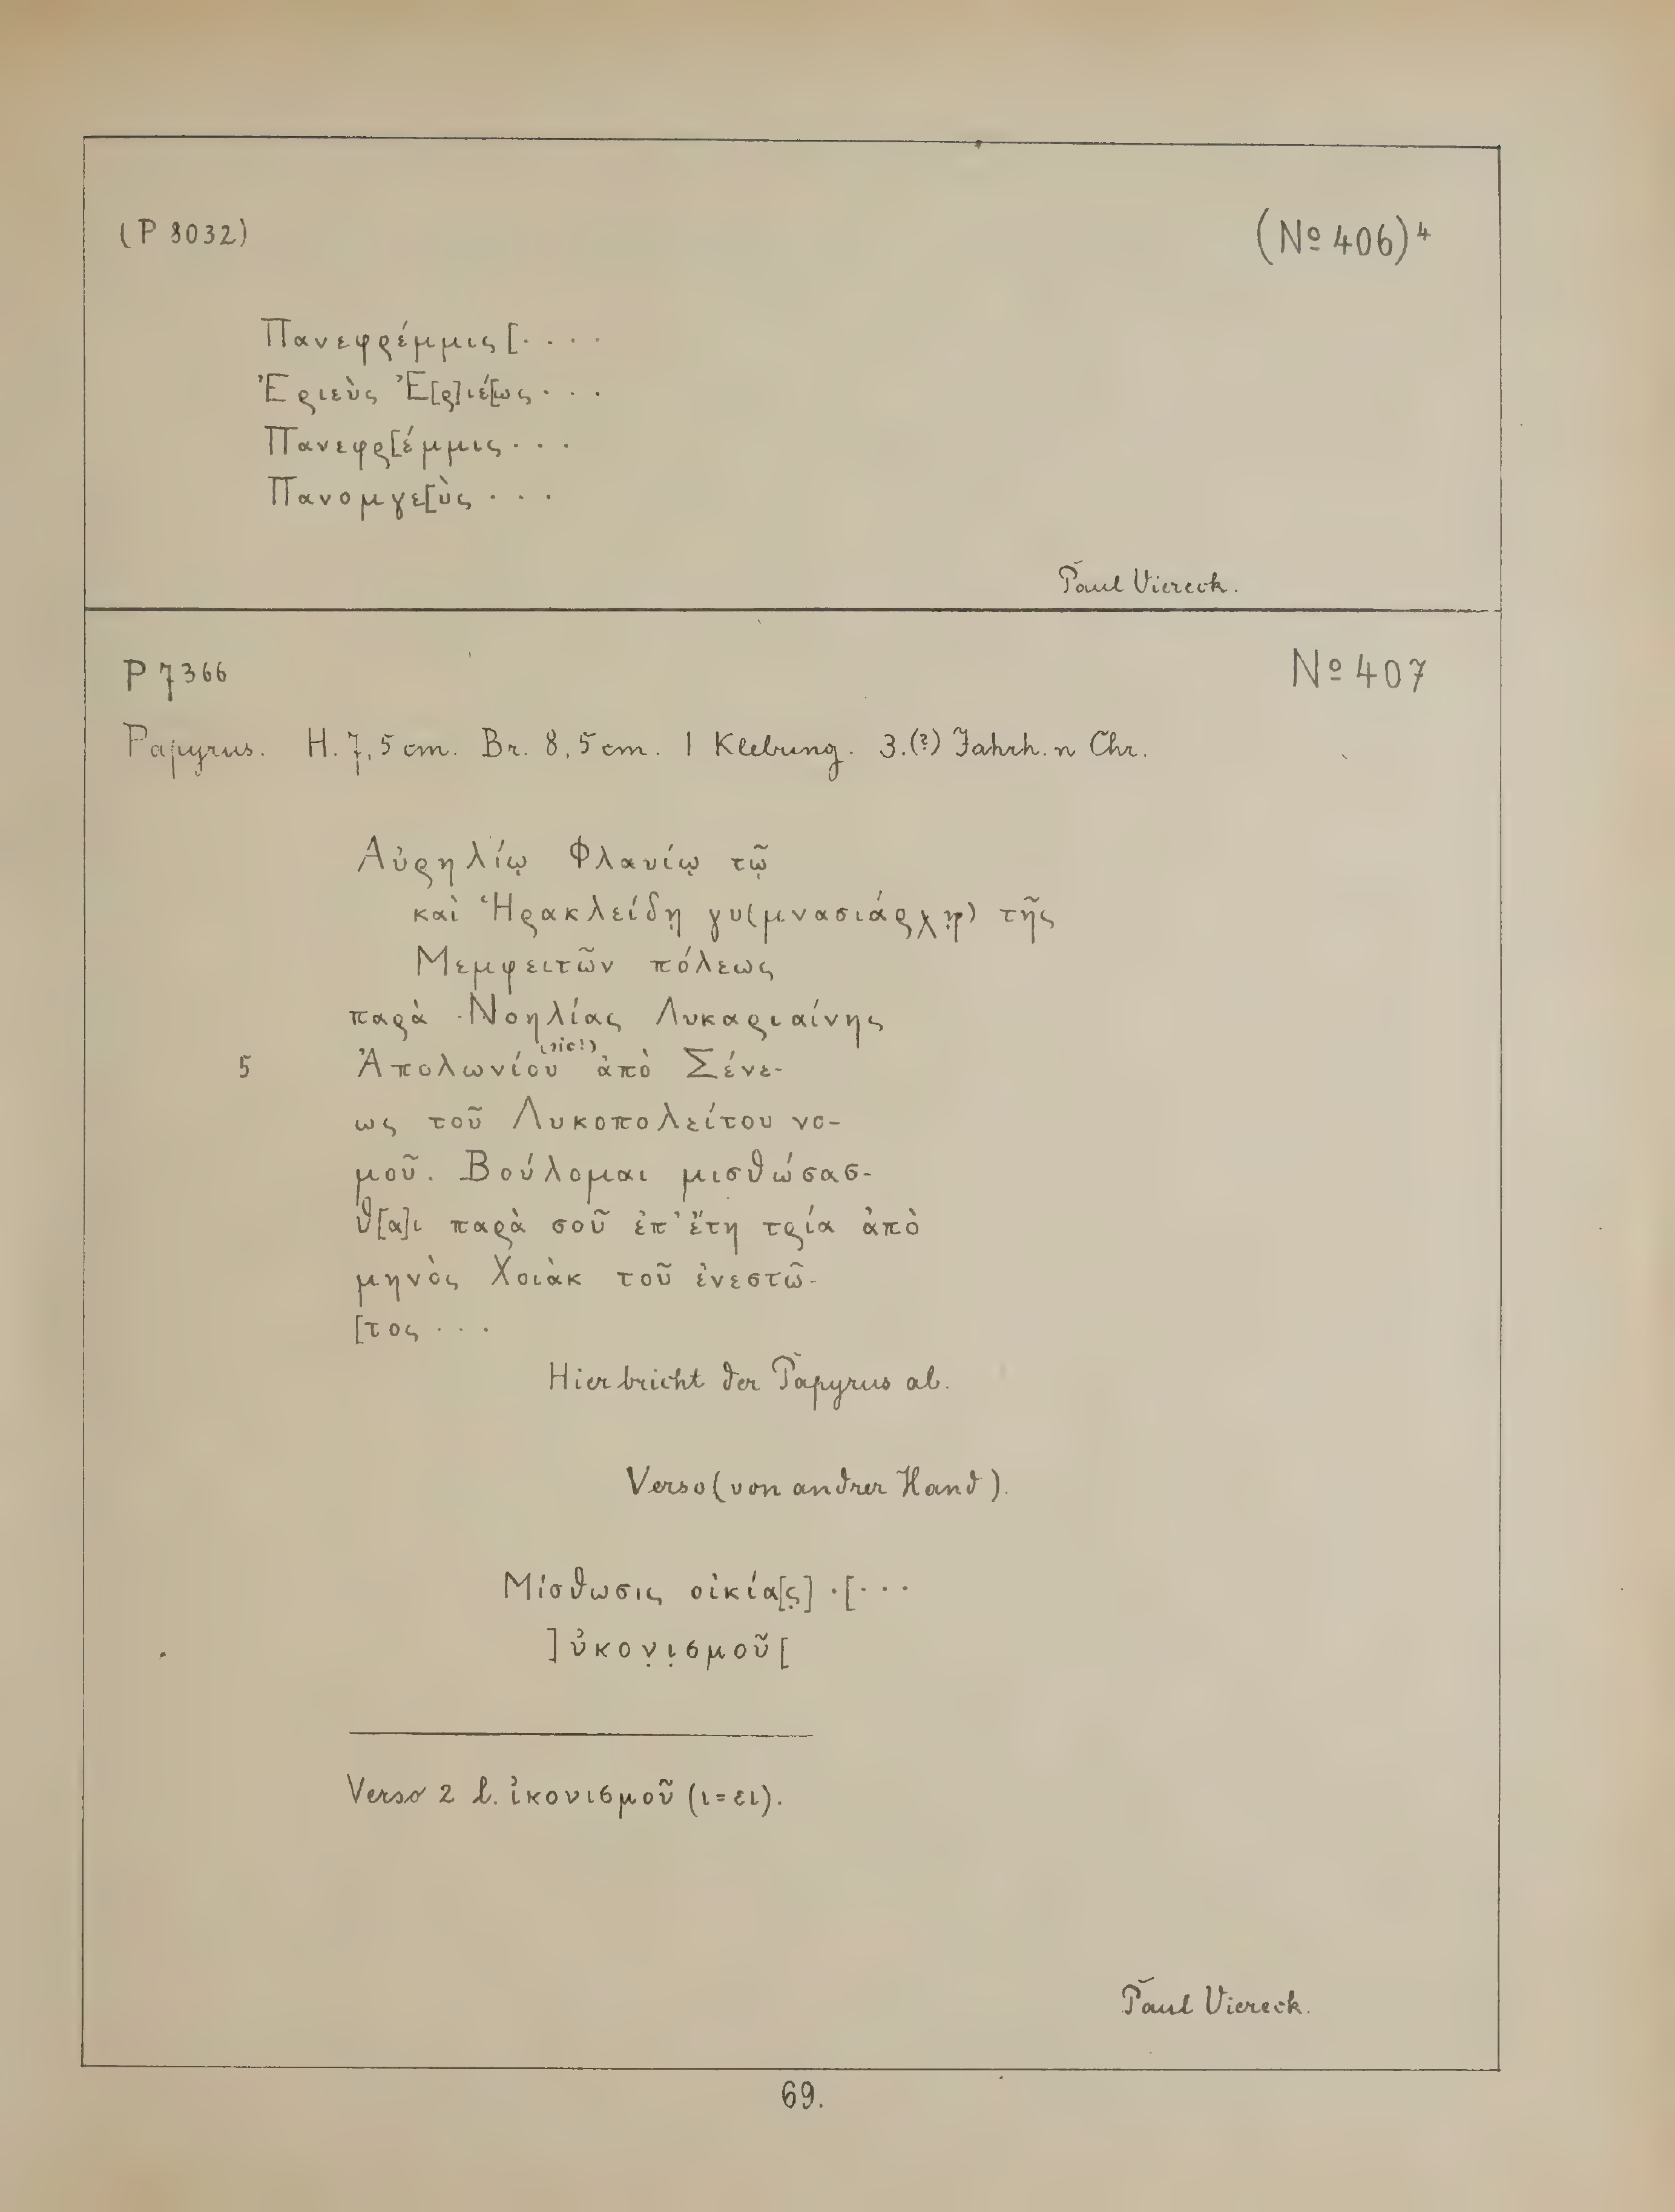 (P 8032)
(Nº 406)⁴
Πανεφρέμμις [· · · ·
Ἐριεὺς Ἐ[ρ]ιέ[ως · · ·
Πανεφρ[έμμις · · ·
Πανομγε[ὺς · · ·
Paul Viereck.
P 7366
Nº 407
Papyrus. H. 7,5 cm. Br. 8,5 cm. 1 Klebung. 3.(?) Jahrh. n Chr.
Αὐρηλίῳ Φλαυίῳ τῷ
καὶ Ἡρακλείδῃ γυ(μνασιάρχῃ) τῆς
Μεμφειτῶν πόλεως
παρὰ ·Νοηλίας Λυκαριαίνης
5 Ἀπολωνίου (sic!) ἀπὸ Σένε-
ως τοῦ Λυκοπολείτου νο-
μοῦ. Βούλομαι μισθώσασ-
θ[α]ι παρὰ σοῦ ἐπ' ἔτη τρία ἀπὸ
μηνὸς Χοιὰκ τοῦ ἐνεστῶ-
[τος · · ·
Hier bricht der Papyrus ab.
Verso (von andrer Hand).
Μίσθωσις οἰκία[ς] ·[· · ·
]ὐκοṿι̣σμοῦ[
Verso 2 l. ἰκονισμοῦ (ι=ει).
Paul Viereck.
69.